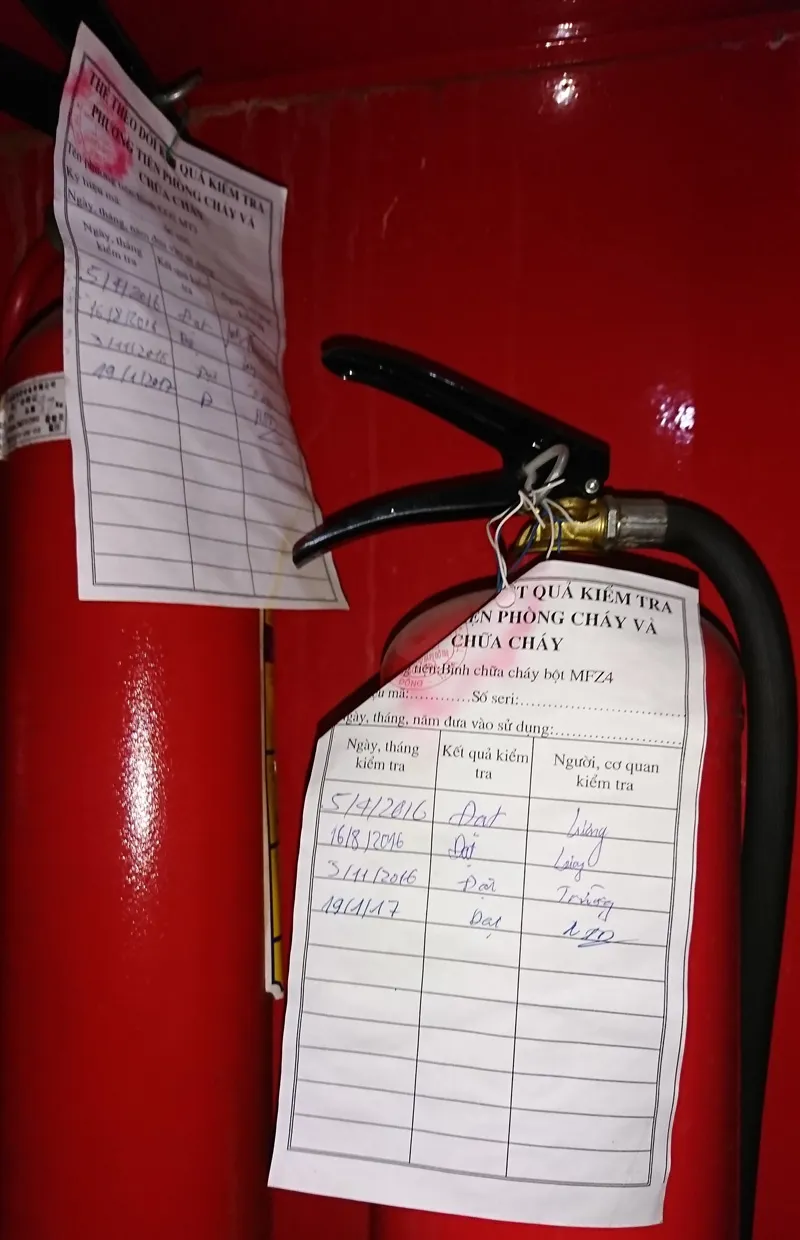 THẺ THEO DÕI KẾT QUẢ KIỂM TRA
PHƯƠNG TIỆN PHÒNG CHÁY VÀ
CHỮA CHÁY
Ký hiệu mã:
Ngày, tháng, năm đưa vào sử dụng
Ngày, tháng kiểm tra Kết quả kiểm tra
5/4/2016 Đạt
16/8/2016
3/11/2016 Đạt
19/1/2017 Đ
T QUẢ KIỂM TRA
ỆN PHÒNG CHÁY VÀ
CHỮA CHÁY
tiện:Bình chữa cháy bột MFZ4
mã:............Số seri:..............................
gày, tháng, năm đưa vào sử dụng:........................
Ngày, tháng kiểm tra Kết quả kiểm tra Người, cơ quan kiểm tra
5/4/2016 Đạt
16/8/2016 Đạt
3/11/2016 Đạt Trường
19/1/17 Đạt